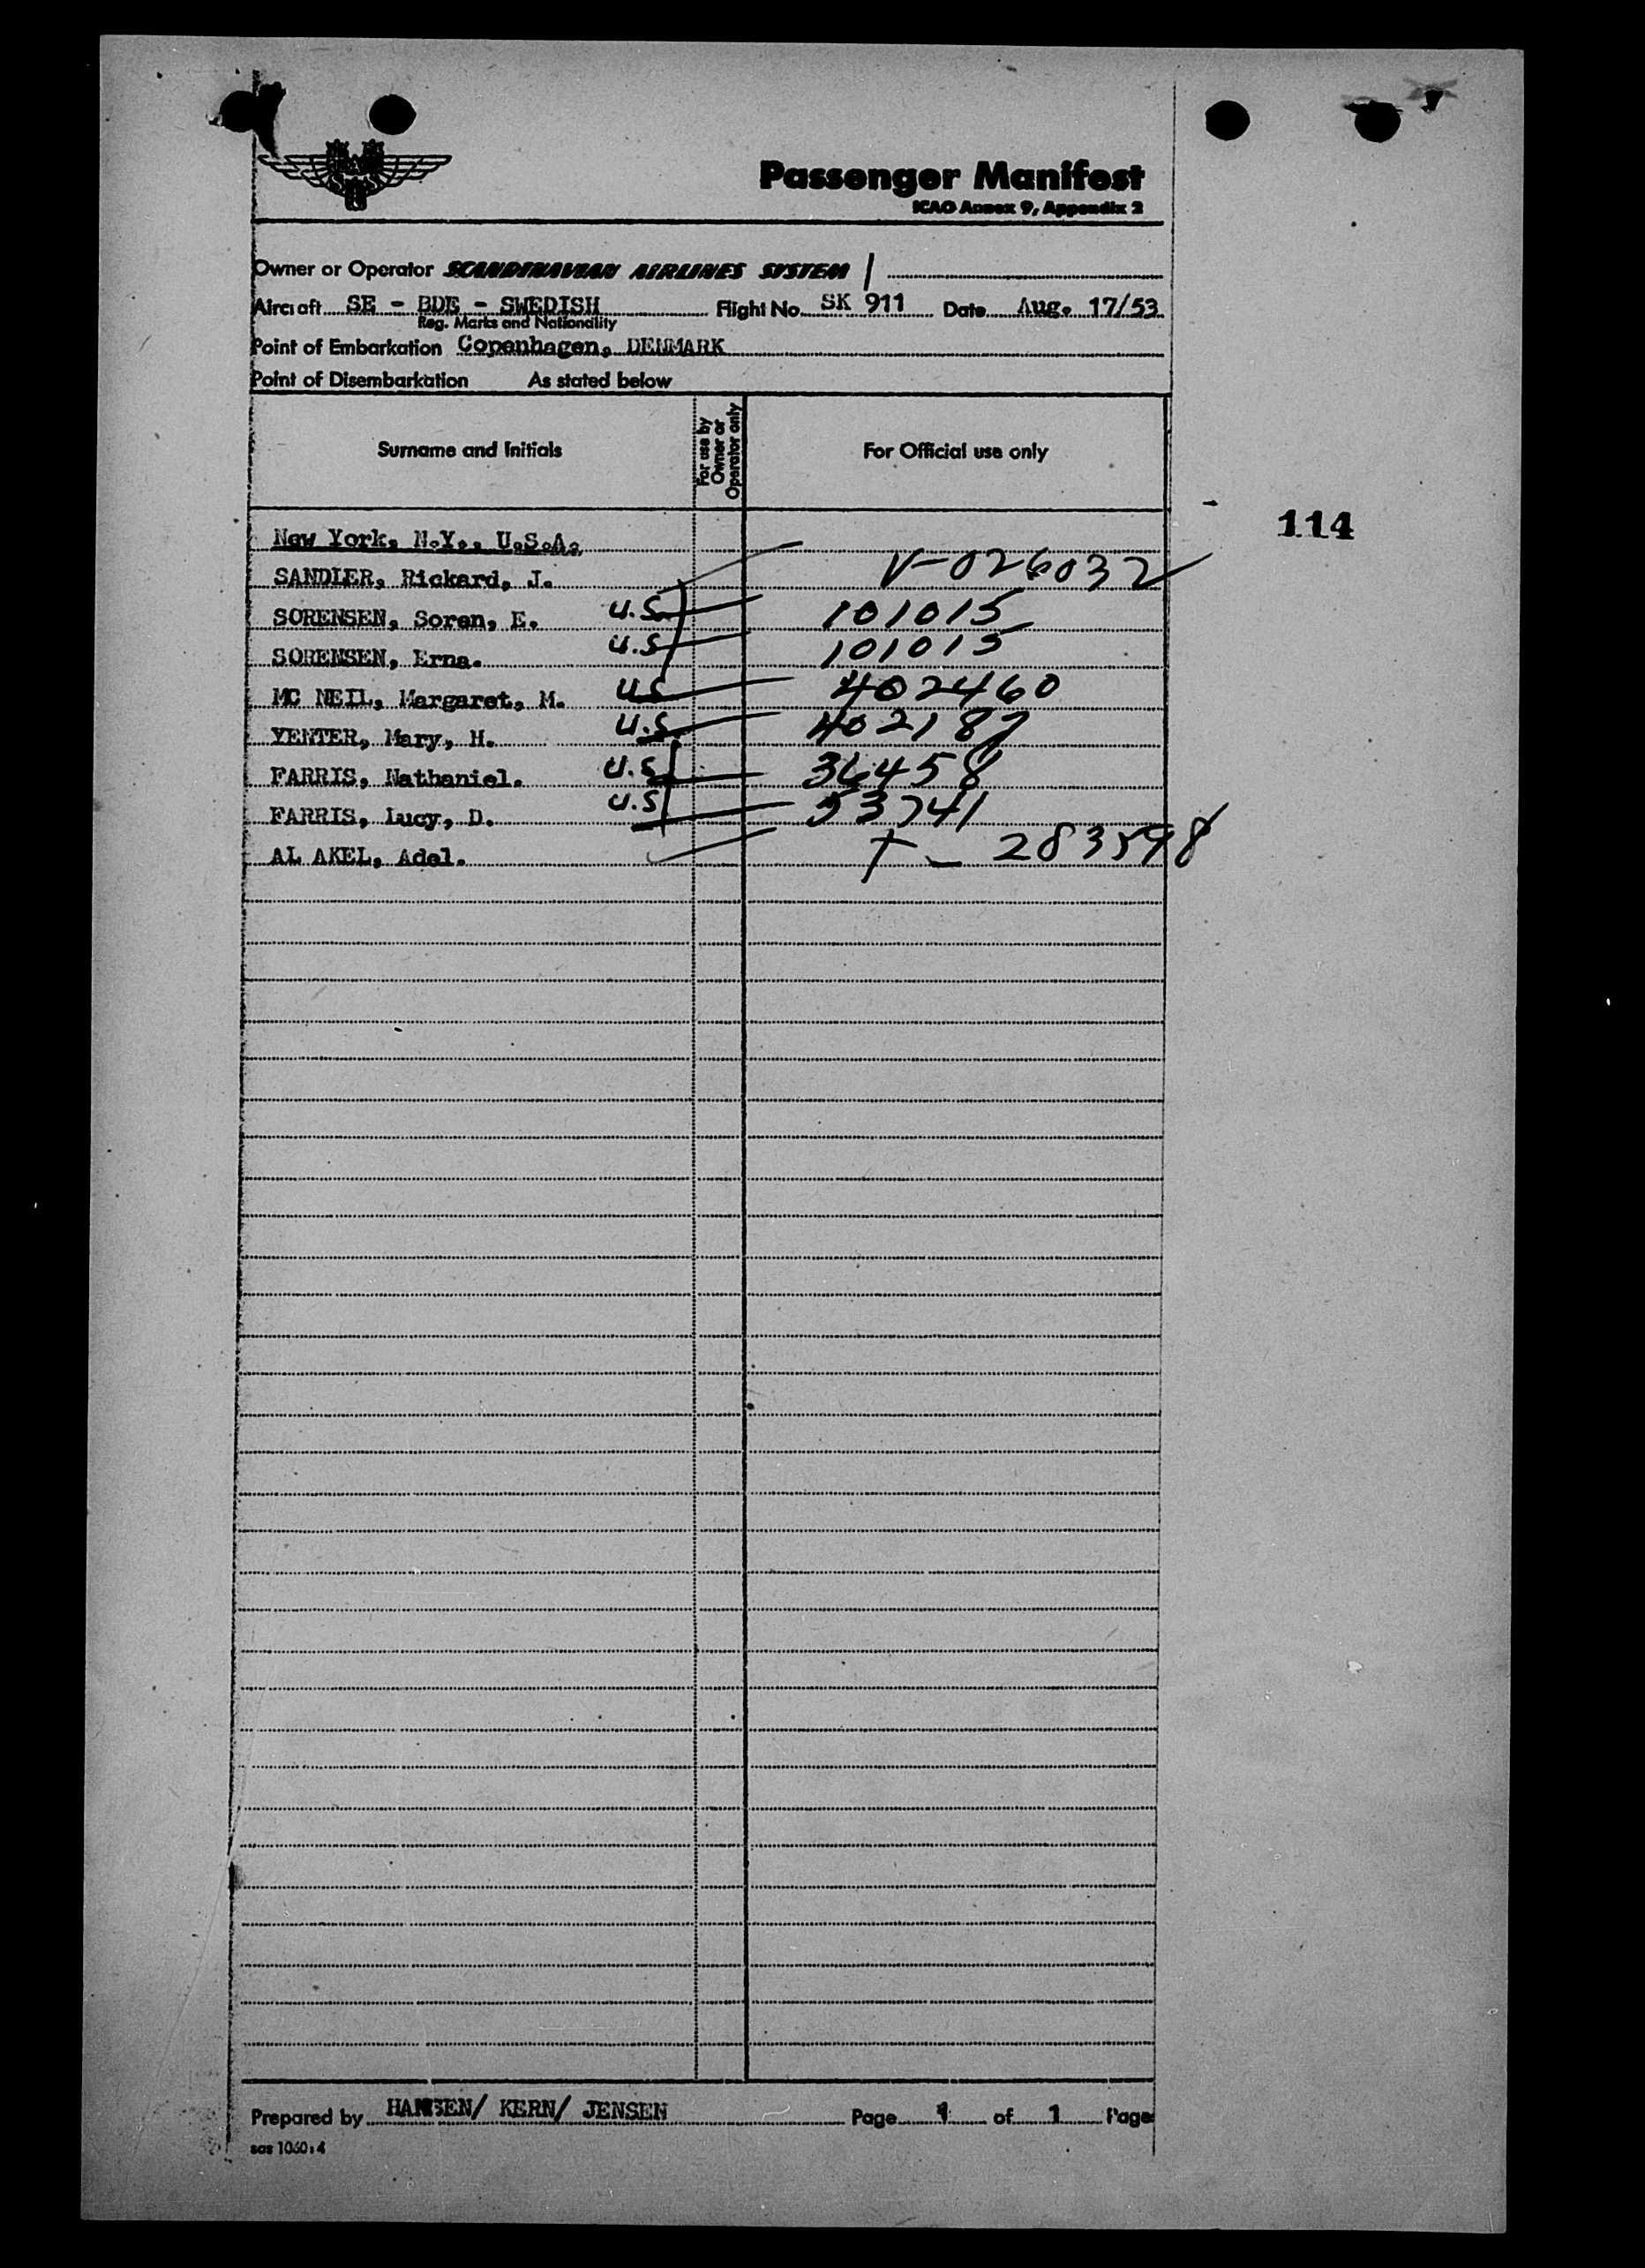 Passenger Manifest
ICAO Annex 9, Appendix 2
Owner or Operator SCANDINAVIAN AIRLINES SYSTEM /
Aircraft SE - BDE - SWEDISH Flight No. SK 911 Date Aug. 17/53
Reg. Marks and Nationality
Point of Embarkation Copenhagen, DENMARK
Point of Disembarkation As stated below
Surname and Initials For use by Owner or Operator only For Official use only
114
New York, N.Y., U.S.A.
SANDLER, Rickard, J. V-026032
SORENSEN, Soren, E. U.S. 101015
SORENSEN, Erna. U.S 101015
MC NEIL, Margaret, M. U.S 402460
YENTER, Mary, H. U.S. 402187
FARRIS, Nathaniel. U.S. 36458
FARRIS, Lucy, D. U.S 53741
AL AKEL, Adel. T - 283598
Prepared by HANSEN/ KERN/ JENSEN Page 1 of 1 Page
sas 1060:4